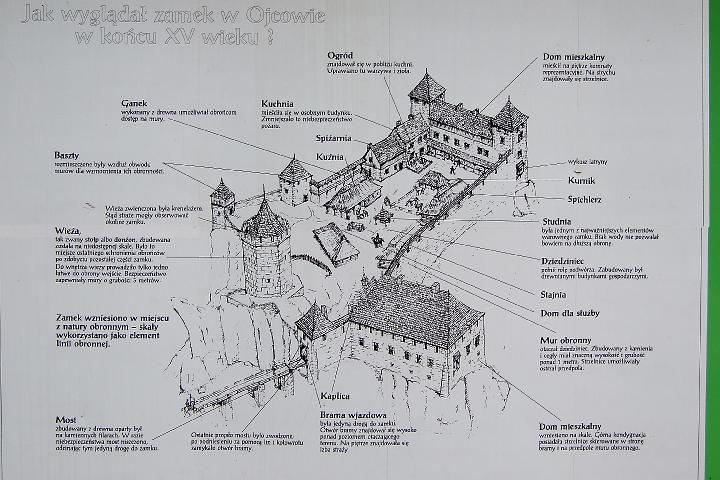 Jak wyglądał zamek w Ojcowie
w końcu XV wieku ?
Ogród
znajdował się w pobliżu kuchni.
Uprawiano tu warzywa i zioła.
Dom mieszkalny
mieścił na piętrze komnaty
reprezentacyjne. Na strychu
znajdowały się strzelnice.
Ganek
wykonany z drewna umożliwiał obrońcom
dostęp na mury.
Kuchnia
mieściła się w osobnym budynku.
Zmniejszało to niebezpieczeństwo
pożaru.
Spiżarnia
Kuźnia
Baszty
rozmieszczone były wzdłuż obwodu
murów dla wzmocnienia ich obronności.
wykusz latryny
Kurnik
Spichlerz
Wieża zwieńczona była krenelażem.
Stąd straże mogły obserwować
okolice zamku.
Studnia
była jednym z najważniejszych elementów
warownego zamku. Brak wody nie pozwalał
bowiem na dłuższą obronę.
Wieża,
tak zwany stołp albo donżon, zbudowana
została na niedostępnej skale. Było to
miejsce ostatniego schronienia obrońców
po zdobyciu pozostałej części zamku.
Do wnętrza wieży prowadziło tylko jedno
łatwe do obrony wejście. Bezpieczeństwo
zapewniały mury o grubości 3 metrów.
Dziedziniec
pełnił rolę podwórza. Zabudowany był
drewnianymi budynkami gospodarczymi.
Stajnia
Dom dla służby
Zamek wzniesiono w miejscu
z natury obronnym – skały
wykorzystano jako element
linii obronnej.
Mur obronny
otaczał dziedziniec. Zbudowany z kamienia
i cegły miał znaczną wysokość i grubość
ponad 1 metra. Strzelnice umożliwiały
ostrzał przedpola.
Kaplica
Most
zbudowany z drewna oparty był
na kamiennych filarach. W razie
niebezpieczeństwa most niszczono,
odcinając tym jedyną drogę do zamku.
Ostatnie przęsło mostu było zwodzone,
po podniesieniu za pomocą lin i kołowrotu
zamykało otwór bramy.
Brama wjazdowa
była jedyną drogą do zamku.
Otwór bramy znajdował się wysoko
ponad poziomem otaczającego
terenu. Na piętrze znajdowała się
izba straży
Dom mieszkalny
wzniesiono na skale. Górna kondygnacja
posiadała strzelnice skierowane w stronę
bramy i na przedpole muru obronnego.